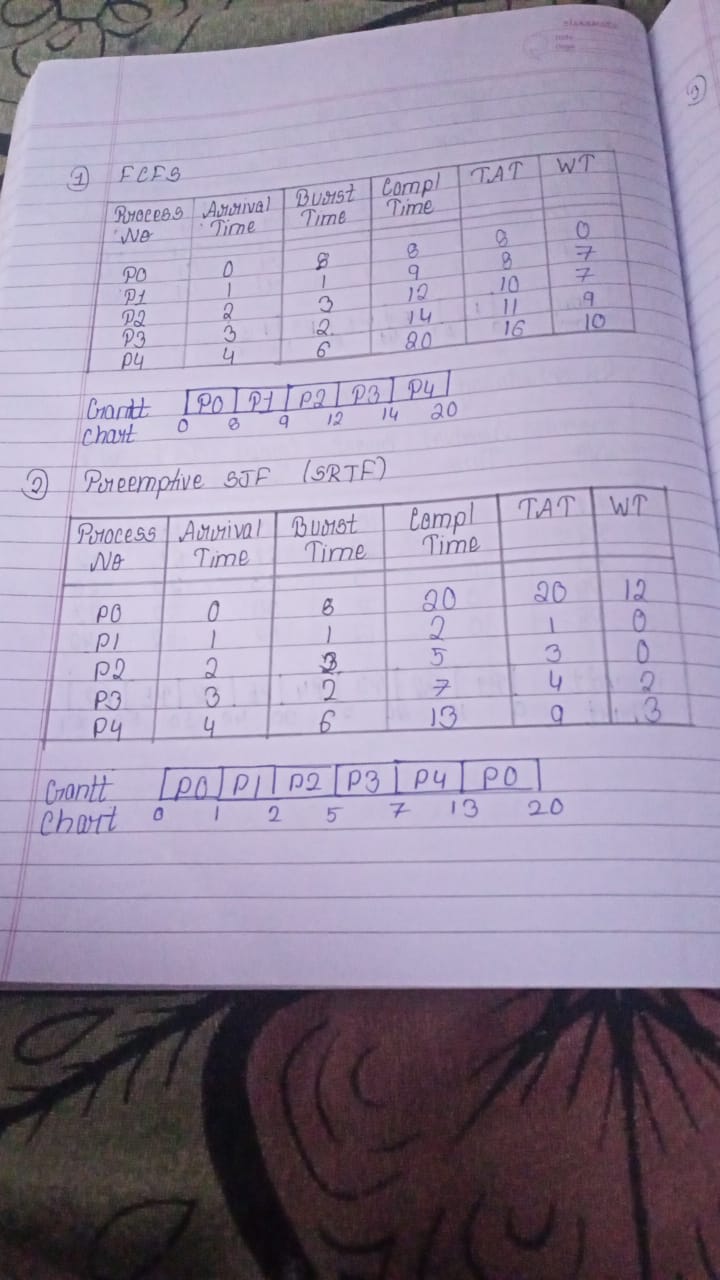 classmate
Date
Page
3
1 FCFS
Process No Arrival Time Burst Time Compl Time TAT WT
P0 0 8 8 8 0
P1 1 1 9 8 7
P2 2 3 12 10 7
P3 3 2 14 11 9
P4 4 6 20 16 10
Gantt Chart P0 P1 P2 P3 P4
0 8 9 12 14 20
2 Preemptive SJF (SRTF)
Process No Arrival Time Burst Time Compl Time TAT WT
P0 0 8 20 20 12
P1 1 1 2 1 0
P2 2 3 5 3 0
P3 3 2 7 4 2
P4 4 6 13 9 3
Gantt Chart P0 P1 P2 P3 P4 P0
0 1 2 5 7 13 20